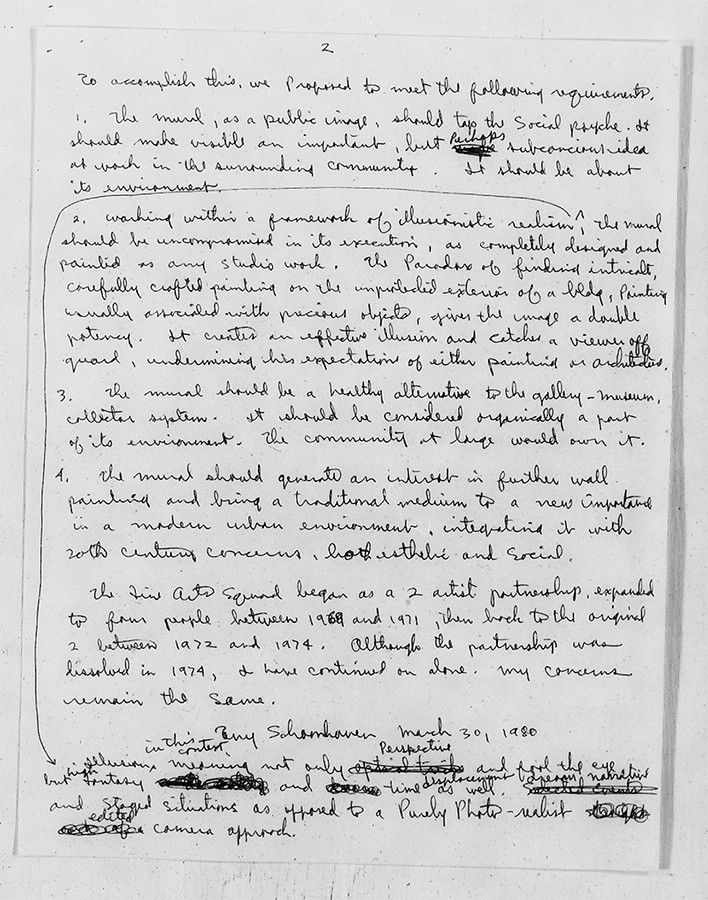 2
To accomplish this, we Proposed to meet the following requirements.
1. The mural, as a public image, should tap the Social psyche. It
should make visible an important, but Perhaps subconcious idea
at work in the surrounding community. It should be about
its environment.
2. Working within a framework of illusionistic realism, the mural
should be uncompromised in its execution, as completely designed and
painted as any studio work. The Paradox of finding intricate,
carefully crafted painting on the unprotected exterior of a bldg, Painting
usually associated with precious objects, gives the image a double
potency. It creates an effective illusion and catches a viewer off
guard, undermining his expectations of either painting or architecture.
3. The mural should be a healthy alternative to the gallery-museum,
collector system. It should be considered organically a part
of its environment. The community at large would own it.
4. The mural should generate an interest in further wall
painting and bring a traditional medium to a new importance
in a modern urban environment, integrating it with
20th century concerns, both esthetic and Social.
The Fine Arts Squad began as a 2 artist partnership, expanded
to four people between 1969 and 1971, then back to the original
2 between 1972 and 1974. Although the partnership was
dissolved in 1974, I have continued on alone. My concerns
remain the same.
Terry Schoonhoven March 30, 1980
in this context
Perspective
Illusion, meaning not only optical tricks and fool the eye
but high fantasy and time displacement as well. narrative
Selected Events
and Staged Situations as opposed to a Purely Photo-realist
edited camera approach.